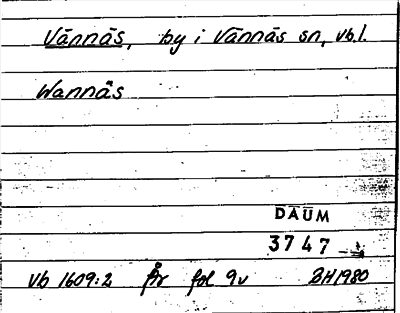 Vännäs, by i Vännäs sn, vb.l.
Wannäs
DAUM
3747
Vb 1609:2 År fol 9v BH1980